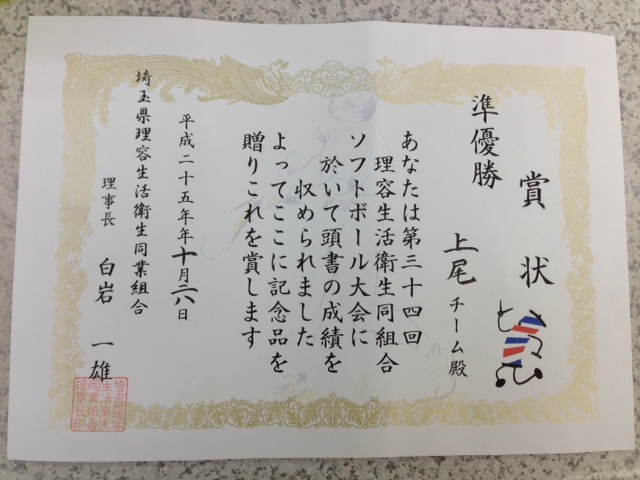 賞状
準優勝
上尾チーム殿
あなたは第三十四回
理容生活衛生同組合
ソフトボール大会に
於いて頭書の成績を
収められました
よってここに記念品を
贈りこれを賞します
平成二十五年年十月二八日
埼玉県理容生活衛生同業組合
理事長 白岩 一雄